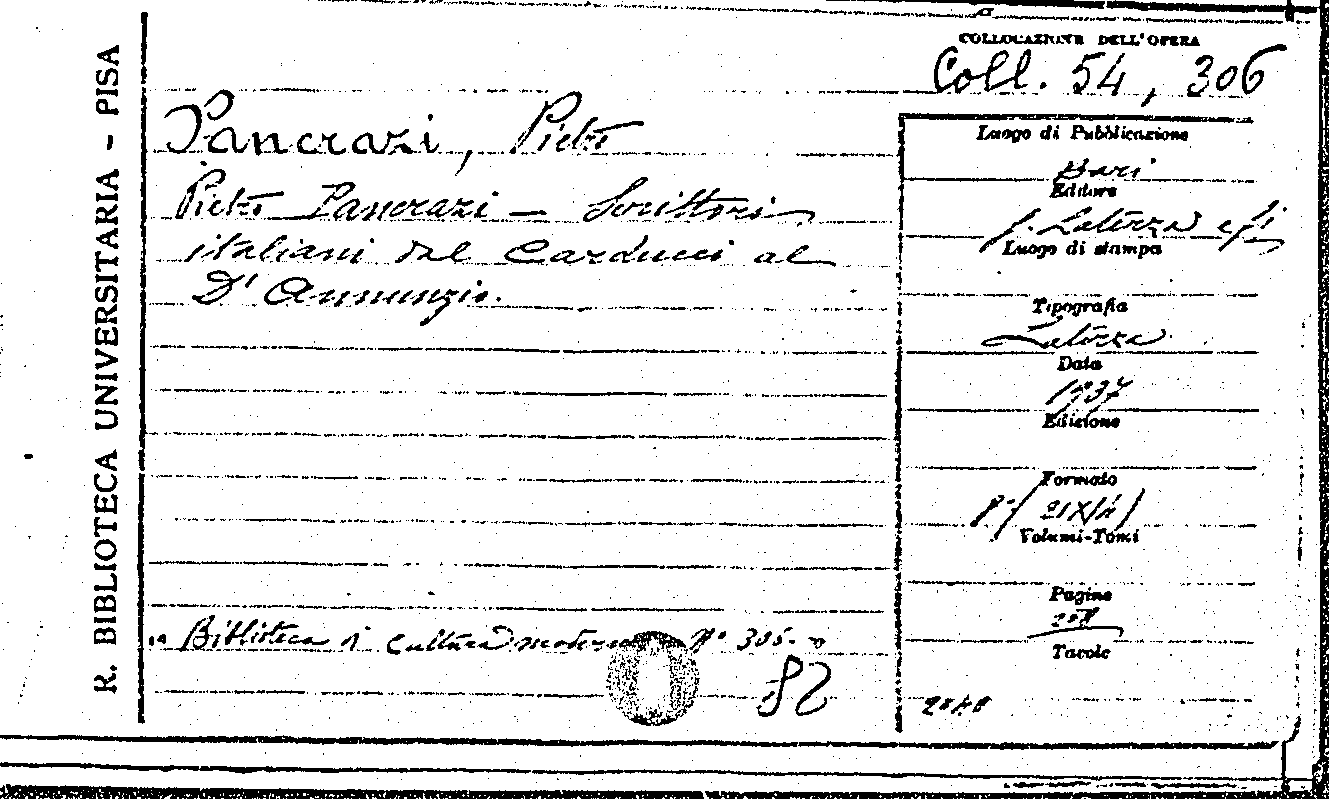 R. BIBLIOTECA UNIVERSITARIA - PISA
COLLOCAZIONE DELL'OPERA
Coll. 54, 306
Pancrazi, Pietro
Pietro Pancrazi - Scrittori
italiani dal Carducci al
D'Annunzio.
Luogo di Pubblicazione
Bari
Editore
G. Laterza e fi
Luogo di stampa
Tipografia
Laterza
Data
1937
Edizione
Formato
8° (21X14)
Volumi-Tomi
Pagine
Tavole
"Biblioteca di Cultura moderna N° 305."
82